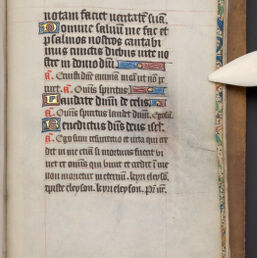 notam faciet veritatē suā.
Domine saluum me fac et
psalmos nostros cantabi
mus cunctis diebus vite no
stre in domo dn̄i.
a. Omīs spiritus
Laudate dn̄m de celis.
a. Omīs spiritus laudet dn̄m. Ego sū
Benedictus dn̄s deus isrl.
a. Ego sum resurrectio et vita qui cre
dit in me etiā si mortuus fuerit vi
vet et omnis qui vivit et credit ī me
non morietur in eternū. kyrieleysō.
xpisteeleyson. kyrieleyson. Pr̄ nr̄.